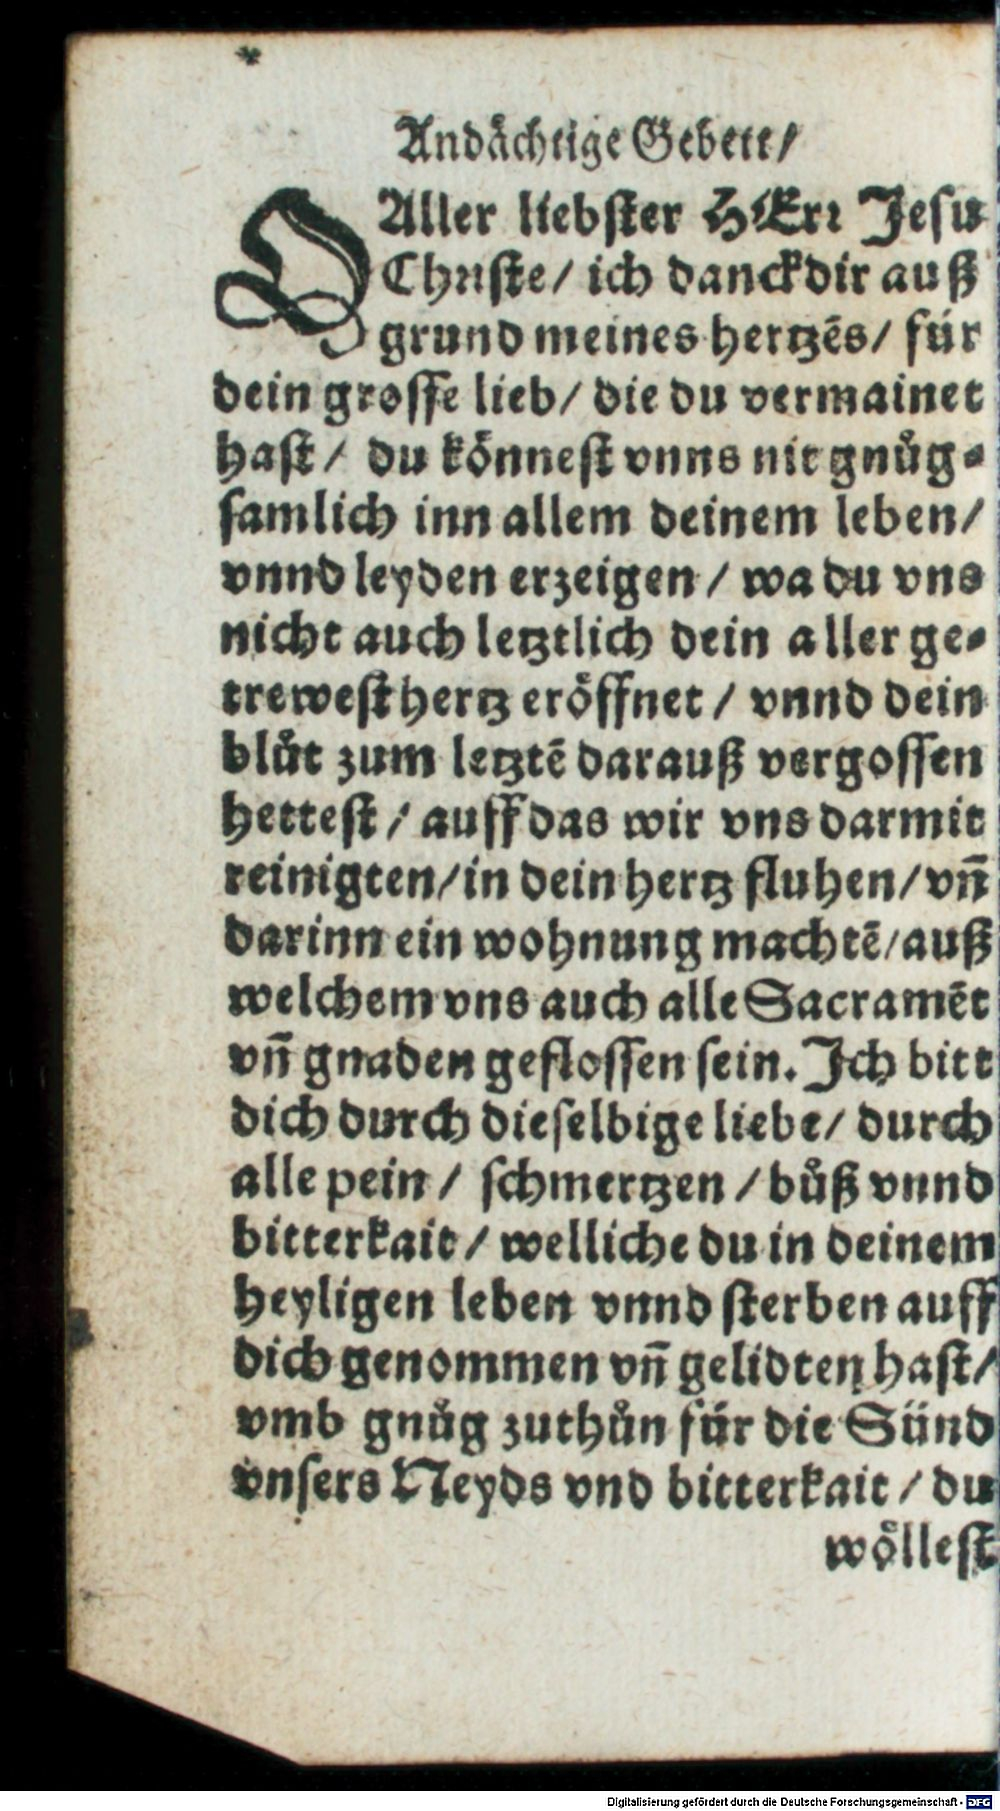 Andaͤchtige Gebett/
O Aller liebſter HErꝛ Jeſu
Chꝛiſte/ ich danck dir auß
grund meines hertzẽs/ fuͤr
dein groſſe lieb/ die du vermainet
haſt/ du koͤnneſt vnns nit gnuͤg⸗
ſamlich inn allem deinem leben/
vnnd leyden erzeigen/ wa du vns
nicht auch letztlich dein aller ge⸗
treweſt hertz eroͤffnet/ vnnd dein
bluͦt zum letztẽ darauß vergoſſen
hetteſt/ auff das wir vns darmit
reinigten/ in dein hertz fluhen/ vñ
darinn ein wohnung machtẽ/ auß
welchem vns auch alle Sacramẽt
vñ gnaden gefloſſen ſein. Ich bitt
dich durch dieſelbige liebe/ durch
alle pein/ ſchmertzen/ buͦß vnnd
bitterkait/ welliche du in deinem
heyligen leben vnnd ſterben auff
dich genommen vñ gelidten haſt/
vmb gnuͦg zuthuͦn fuͤr die Suͤnd
vnſers Neyds vnd bitterkait/ du
woͤlleſt
Digitalisierung gefördert durch die Deutsche Forschungsgemeinschaft - DFG